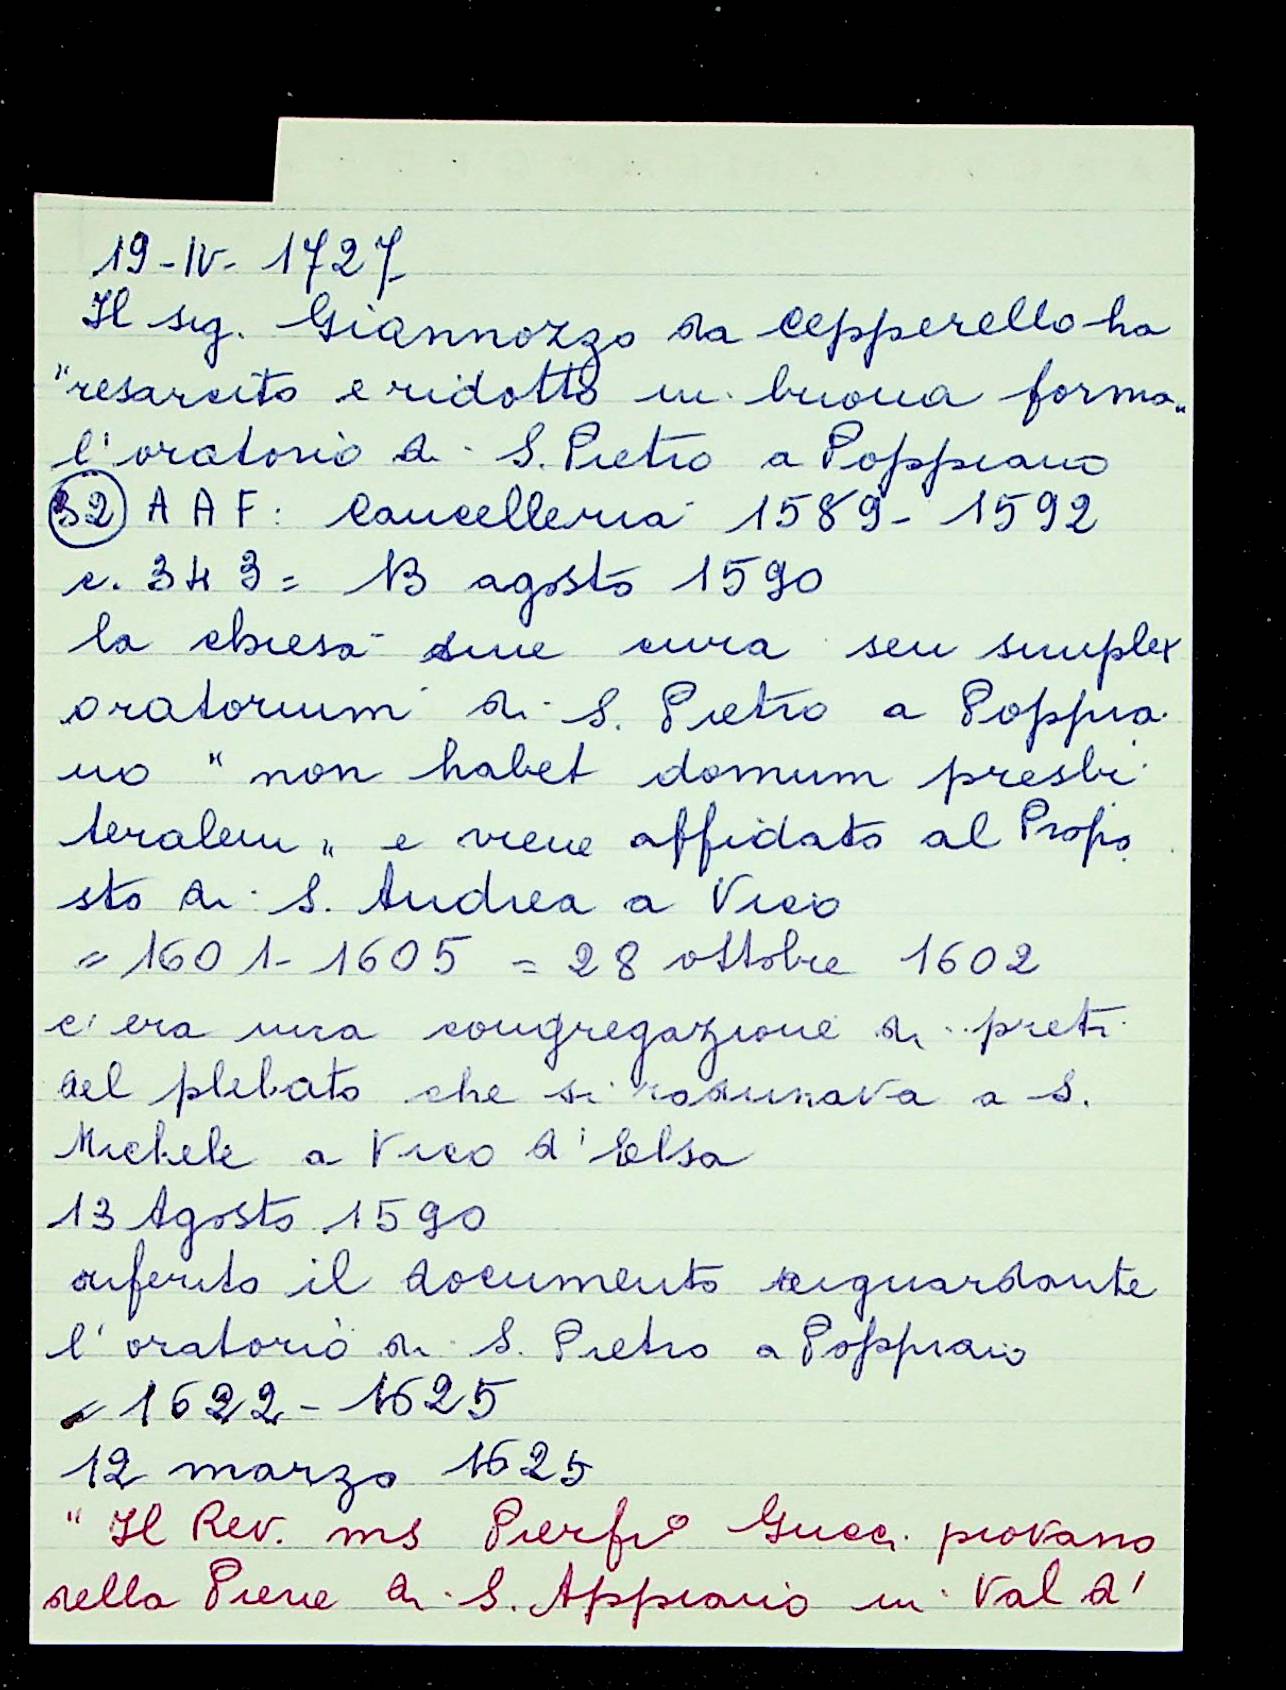 19-IV- 1727
Il sig. Giannozzo da Cepperello ha
"resarcito e ridotto in buona forma"
l'oratorio di S. Pietro a Poppiano
32 A A F: Cancelleria 1589- 1592
c. 343= 13 agosto 1590
la chiesa sine cura seu simplex
oratorium di S. Pietro a Poppia
no "non habet domum presbi
teralem" e viene affidato al Propo
sto di S. Andrea a Vico
= 1601- 1605 = 28 ottobre 1602
c'era una congregazione di preti
del plebato che si radunava a S.
Michele a Vico d'Elsa
13 Agosto 1590
riferito il documento riguardante
l'oratorio di S. Pietro a Poppiano
= 1622- 1625
12 marzo 1625
"Il Rev. ms Pierfro Gucci piovano
della Pieve di S. Appiano in Val d'